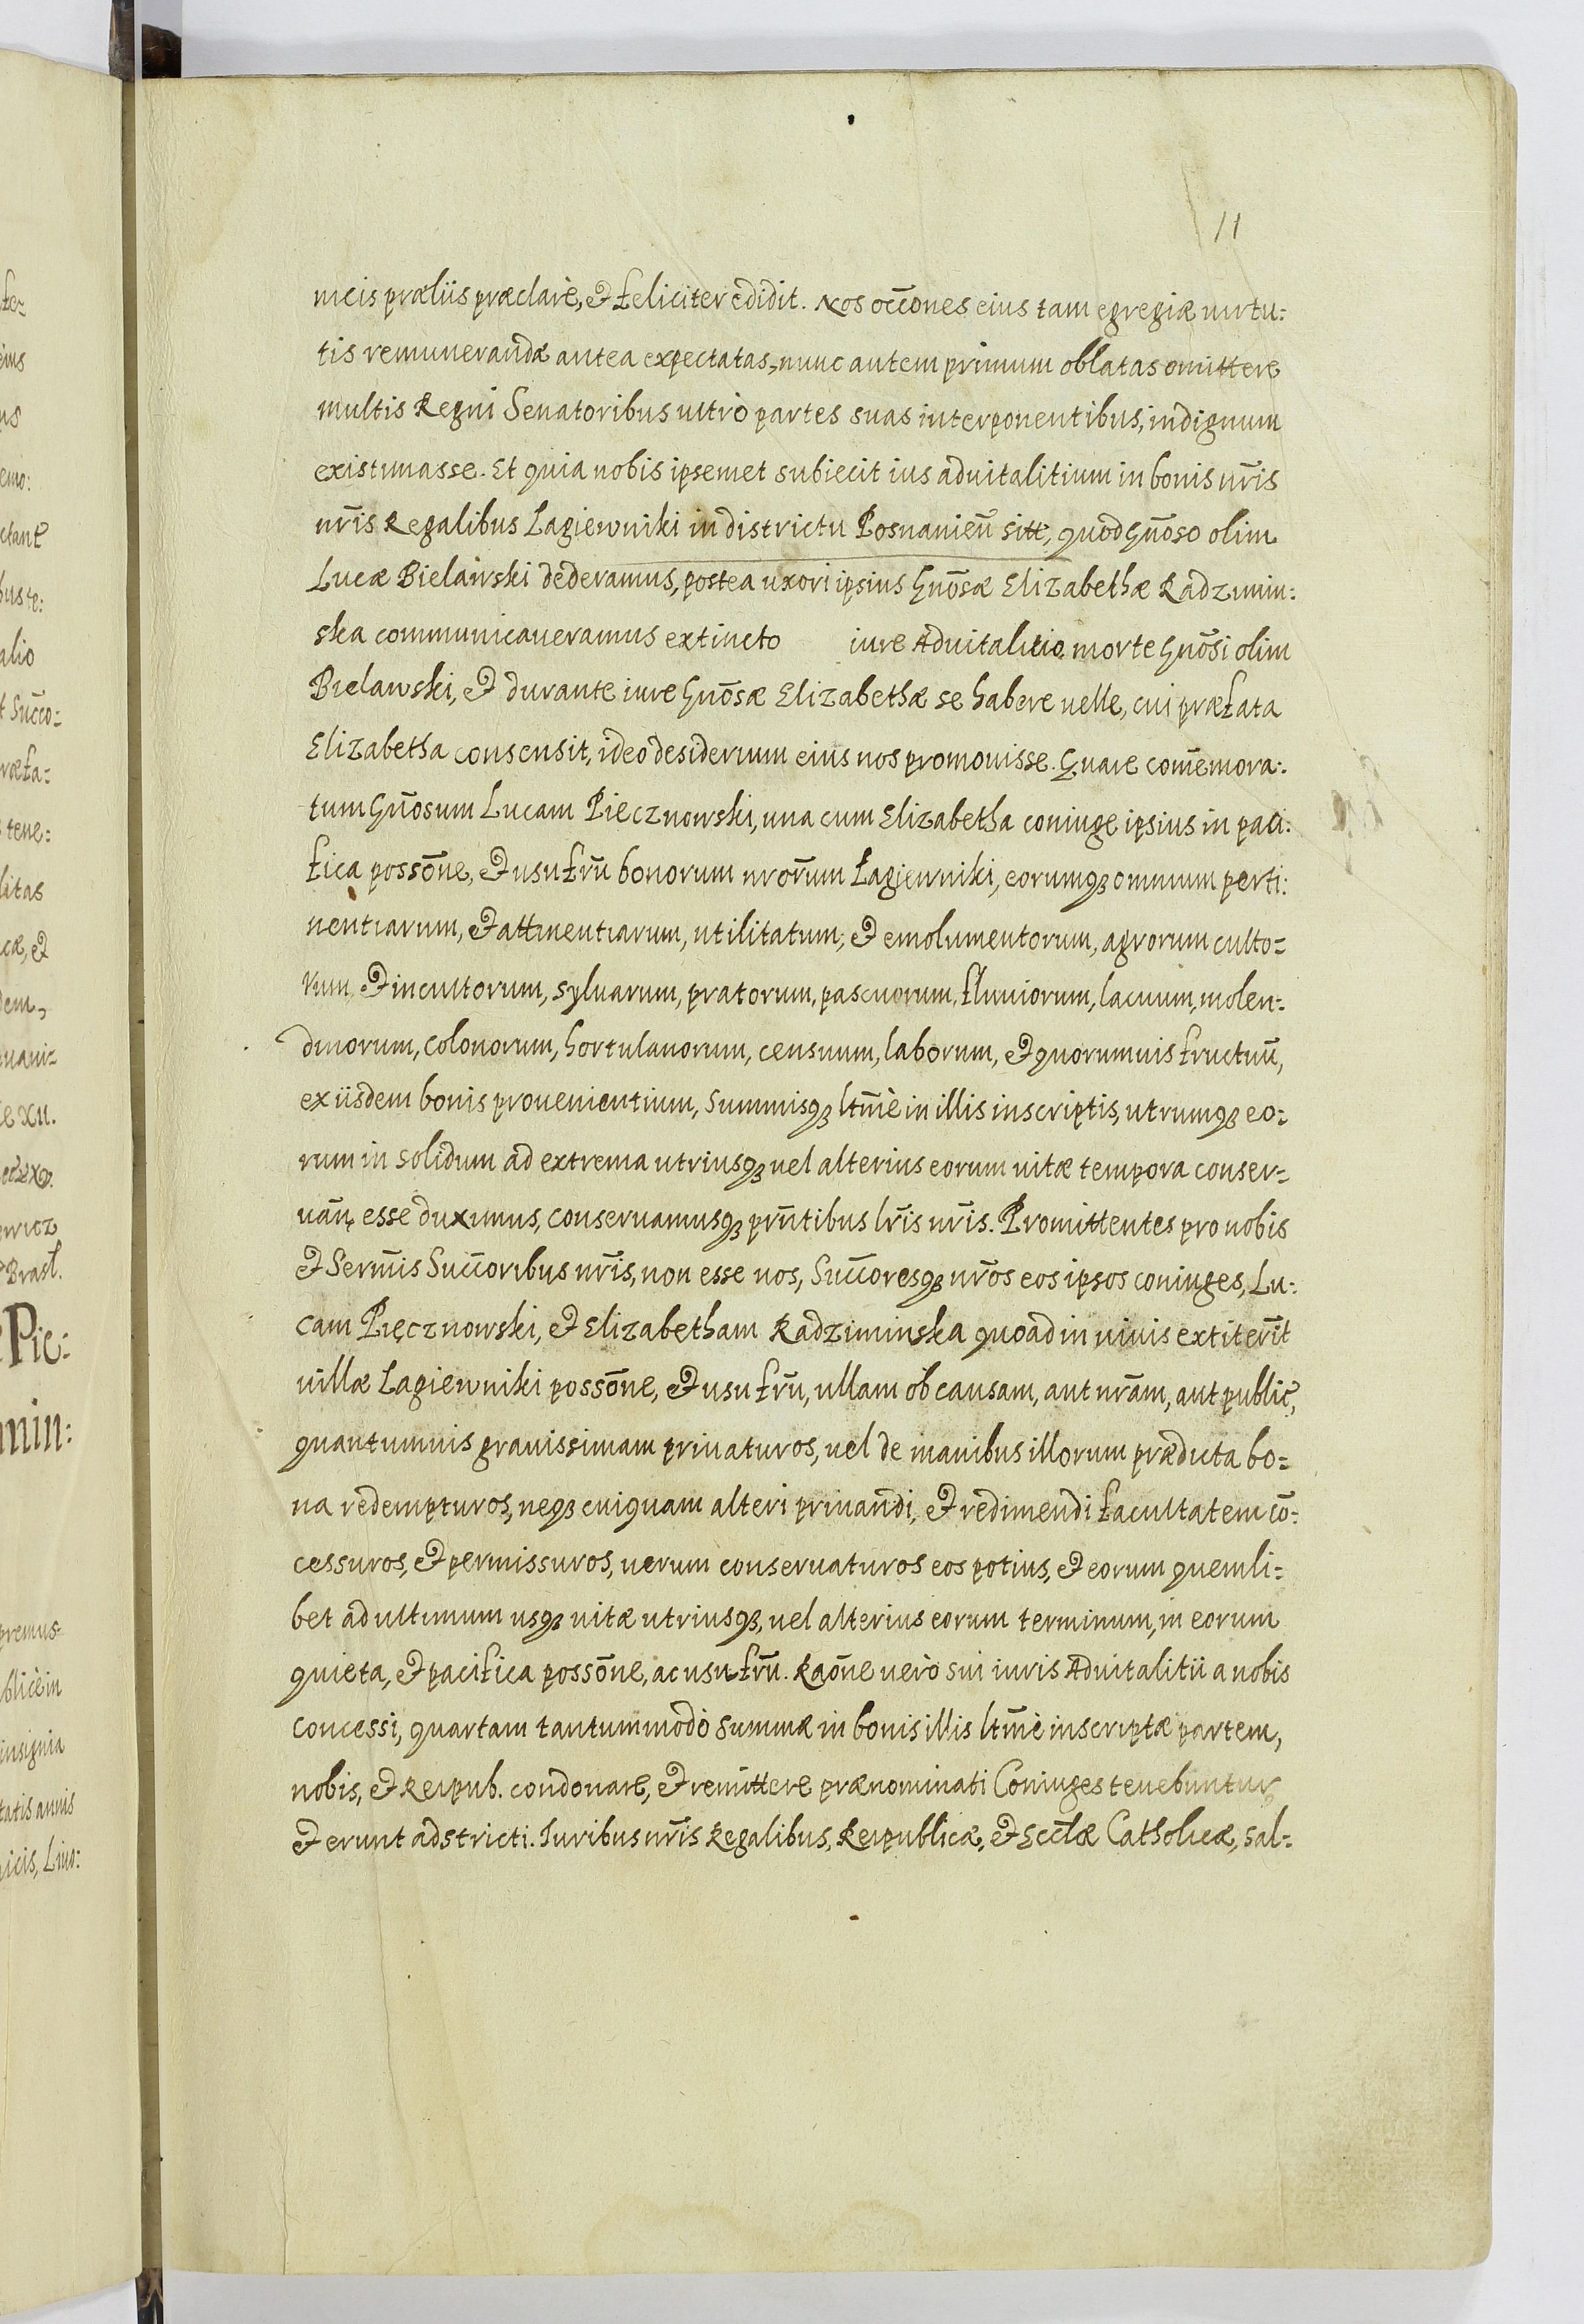 11
nicis præliis præclarè, et feliciter edidit. Nos occ̄ones eius tam egregiæ uirtu:
tis remunerandæ antea expectatas, nunc autem primum oblatas omittere
multis Regni Senatoribus ultrò partes suas interponentibus, indignum
existimasse. Et quia nobis ipsemet subiecit ius aduitalitium in bonis nr̄is
nr̄is Regalibus Łagiewniki in districtu Posnanien̄ sitt, quod Gn̄oso olim
Lucæ Bielawski dederamus, postea uxori ipsius Gn̄osæ Elizabethæ Radzimin:
ska communicaueramus extincto iure Aduitalitio morte Gn̄osi olim
Bielawski, et durante iure Gn̄osæ Elizabethæ se habere uelle, cui præfata
Elizabetha consensit, ideo desiderium eius nos promouisse. Quare com̄emora:
tum Gn̄osum Lucam Pięcznowski, una cum Elizabetha coniuge ipsius in paci:
fica poss̄one, et usufrū bonorum nror̄um Łagiewniki, eorumq3 omnium perti:
nentiarum, et attinentiarum, utilitatum, et emolumentorum, agrorum culto=
rum, et incultorum, syluarum, pratorum, pascuorum, fluuiorum, lacuum, molen=
dinorum, colonorum, hortulanorum, censuum, laborum, et quorumuis fructuū,
ex iisdem bonis prouenientium, summisq3 ltm̄è in illis inscriptis, utrumq3 eo=
rum in solidum ad extrema utriusq3 uel alterius eorum uitæ tempora conser=
uān̨ esse duximus, conseruamusq3 prn̄tibus lr̄is nr̄is. Promittentes pro nobis
et Serm̄is Succ̄oribus nr̄is, non esse nos, Succ̄oresq3 nr̄os eos ipsos coniuges, Lu:
cam Pięcznowski, et Elizabetham Radziminska quoad in uiuis extiterīt
uillæ Łagiewniki poss̄one, et usufrū, ullam ob causam, aut nrām, aut public̄,
quantumuis grauissimam priuaturos, uel de manibus illorum prædicta bo=
na redempturos, neq3 cuiquam alteri priuandi, et redimendi facultatem cō:
cessuros, et permissuros, uerum conseruaturos eos potius, et eorum quemli=
bet ad ultimum usq3 uitæ utriusq3, uel alterius eorum terminum, in eorum
quieta, et pacifica poss̄one, ac usufrū. Raōne uerò sui iuris Aduitalitii a nobis
concessi, quartam tantummodò summæ in bonis illis ltm̄è inscriptæ partem,
nobis, et Reipub. condonare, et remittere prænominati Coniuges tenebuntur,
et erunt adstricti. Iuribus nr̄is Regalibus, Reipublicæ, et Eccl̄æ Catholicæ, sal=